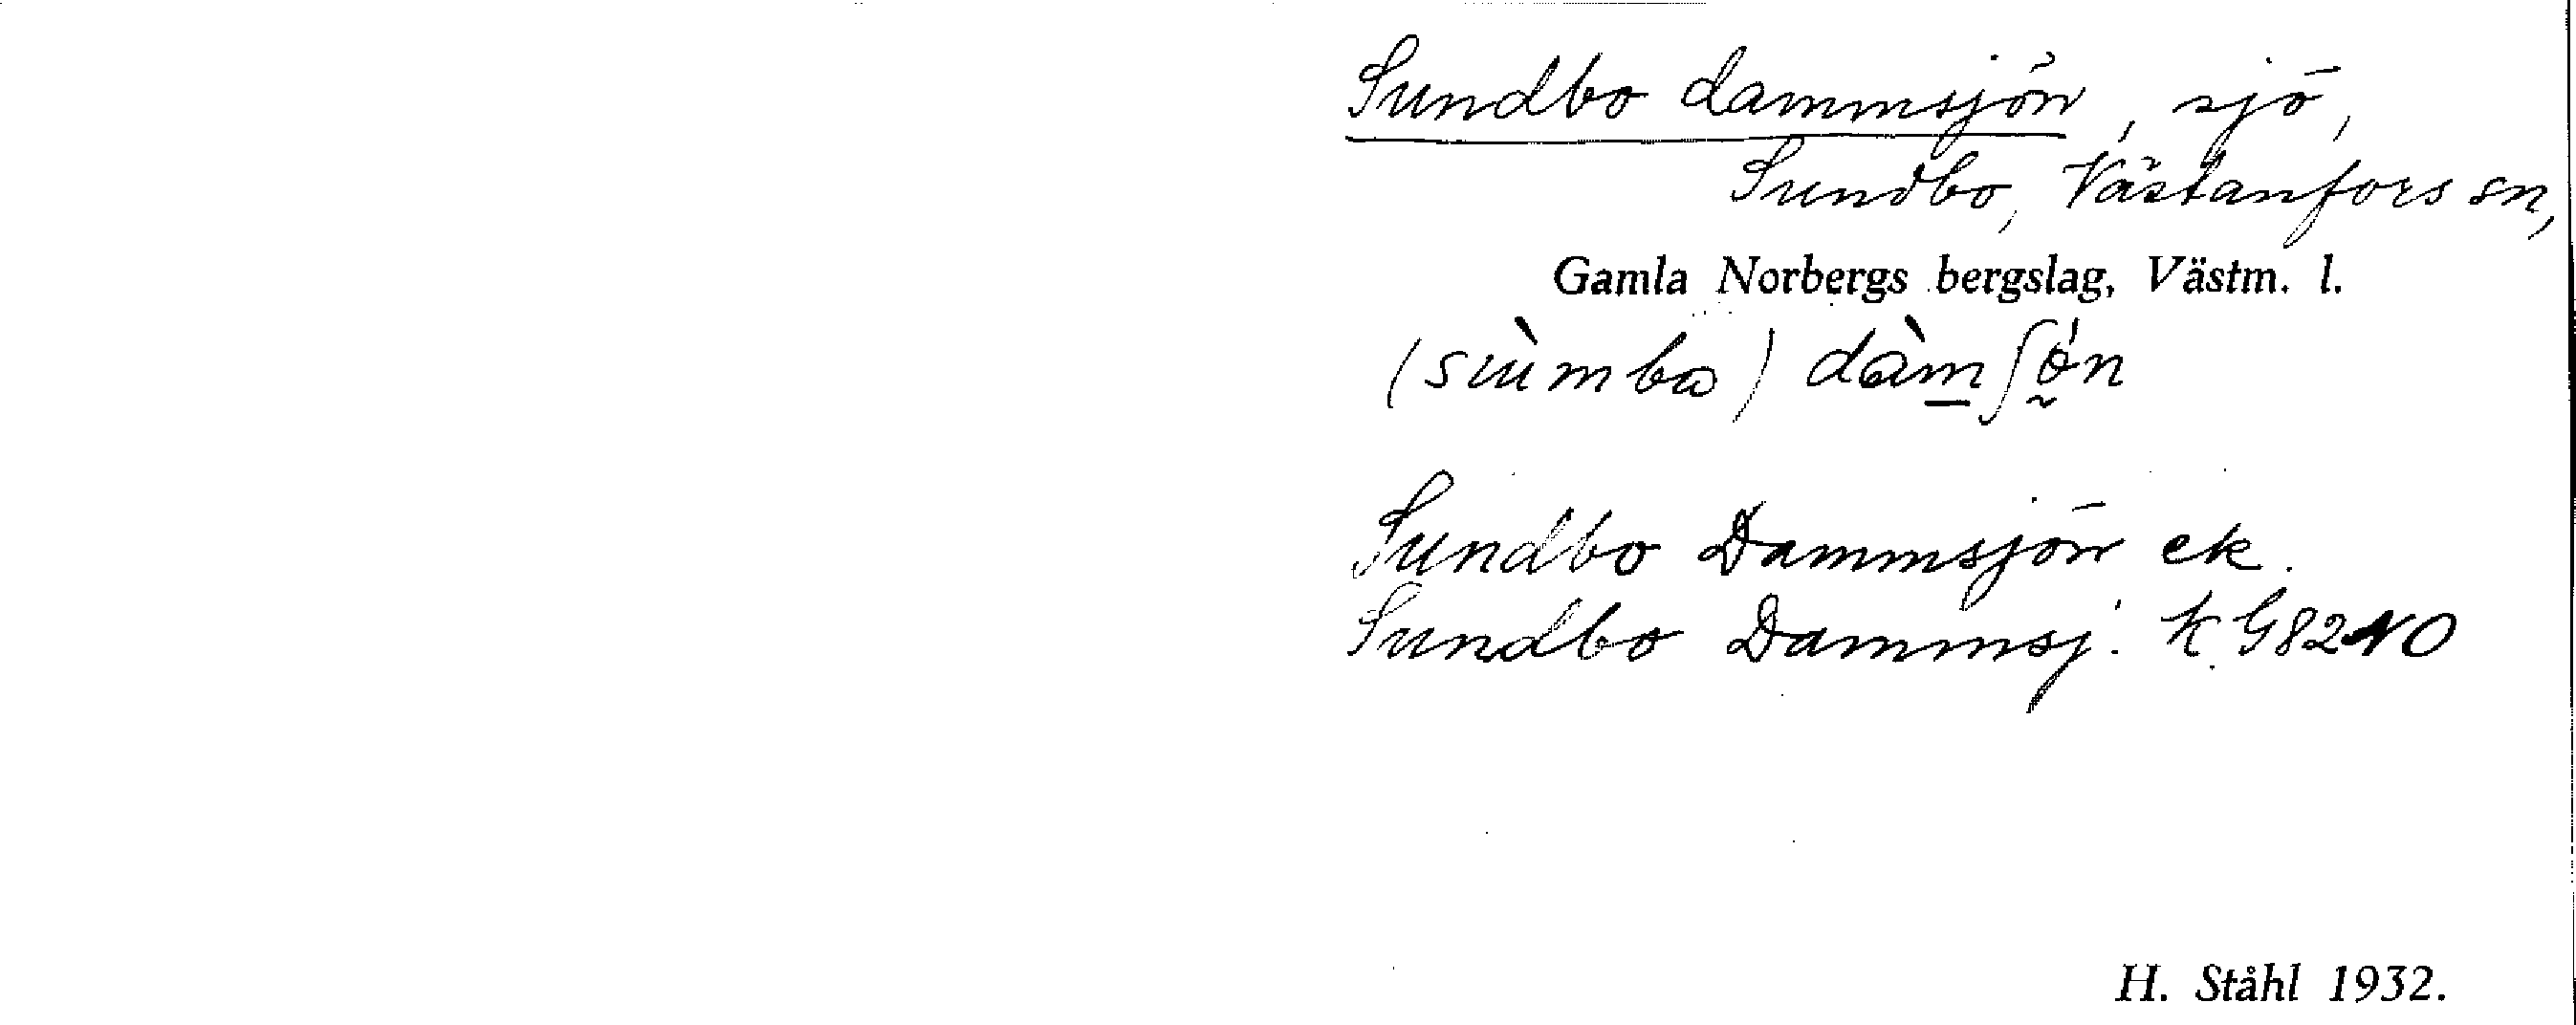 Sundbo dammsjön, sjö,
Sundbo, Västanfors sn,
Gamla Norbergs bergslag, Västm. l.
Sundbo Dammsjön ek.
Sundbo Dammsj. K G82NO
H. Ståhl 1932.